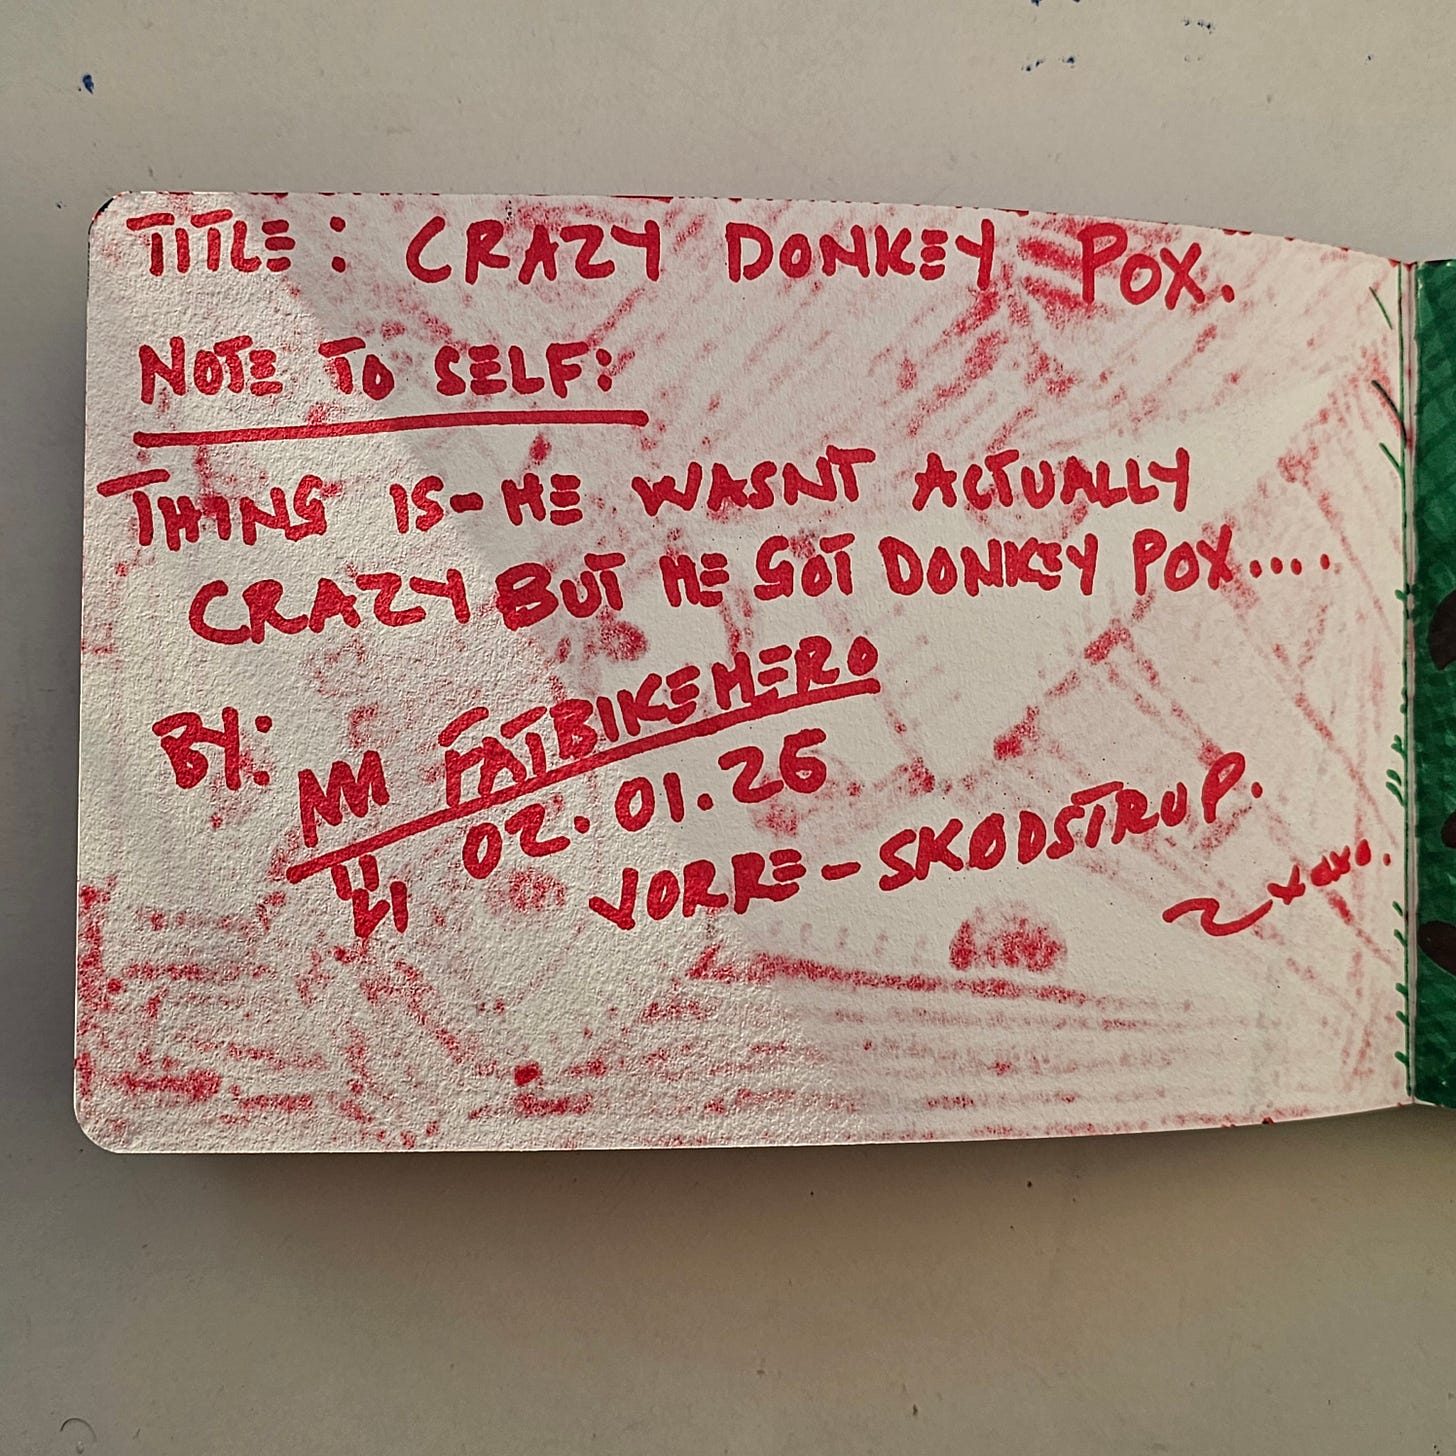 TITLE: CRAZY DONKEY POX.
NOTE TO SELF:
THING IS- HE WASNT ACTUALLY
CRAZY BUT HE GOT DONKEY POX.....
BY: FATBIKEHERO
02.01.26
VORRE-SKØDSTRUP.
xoxo.